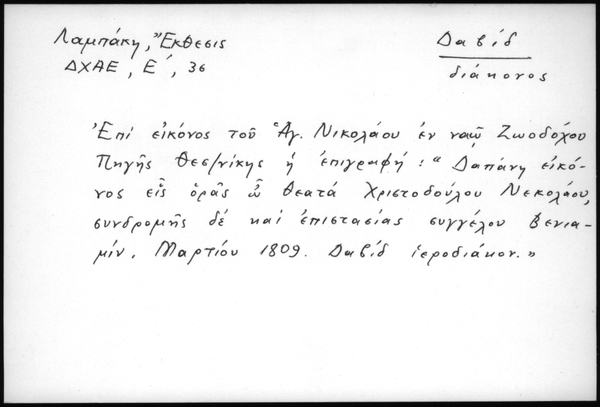 Λαμπάκη, Ἔκθεσις
ΔΧΑΕ, Ε΄, 36
Δαβίδ
διάκονος
Ἐπί εἰκόνος τοῦ Ἁγ. Νικολάου ἐν ναῷ Ζωοδόχου
Πηγῆς Θεσ/νίκης ἡ ἐπιγραφή: "Δαπάνη εἰκό-
νος εἷς ὁρᾶς ὦ θεατά Χριστοδούλου Νεκολάου,
συνδρομῆς δέ καί ἐπιστασίας συγγέλου Βενια-
μίν. Μαρτίου 1809. Δαβίδ ἱεροδιάκον."